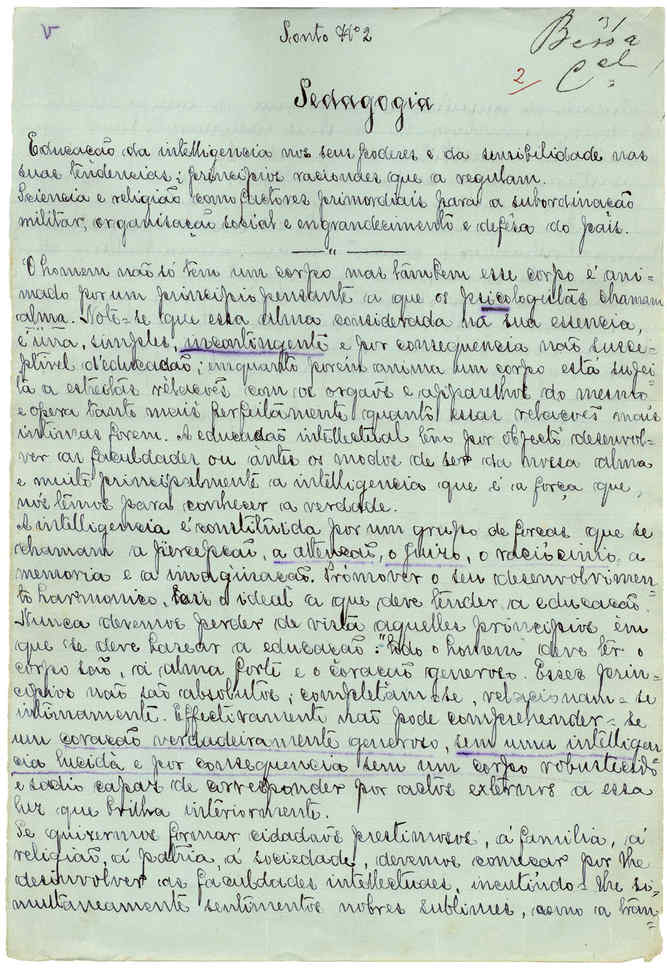 V
Ponto Nº 2
2
Pedagogia
Educação da intelligencia nos seus poderes e da sensibilidade nas
suas tendencias; principios racionaes que a regulam.
Sciencia e religião como factores primordiais para a subordinação
militar, organisação social e engrandecimento e defêsa do país.
O homem não só tem um corpo mas tâmbem esse corpo é ani-
mado por um principio pensante a que os psicologistas chamam
alma. Note-se que essa alma considerada na sua essencia,
é una, simples, incontingente e por consequencia não susce-
ptivel d'educação; enquanto porém anima um corpo está sujei-
ta a estreitas relacões com os orgãos e apparelhos do mesmo
e opera tanto mais perfeitamente quanto essas relacões mais
intimas forem. A educação intellectual tem por objecto desenvol-
ver as faculdades ou antes os modos de ser da nossa alma
e muito principalmente a intelligencia que é a força que,
nós têmos para conhecer a verdade.
A intelligencia é constituida por um grupo de forcas que se
chamam a percepção, a attencão, o juizo, o raciocinio, a
memoria e a imaginacão. Promover o seu desenvolvimen-
to harmonico, eis o ideal a que deve tender a educacão.
Nunca devemos perder de vista aquelles principios em
que se deve basear a educacão: "todo o homem deve ter o
corpo são, a alma forte e o coração generoso. Esses prin-
cipios não são absolutos; completam-se, relacionam-se
intimamente. Effectivamente não pode comprehender-se
um coracão verdadeiramente generoso, sem uma intelligen-
cia lucida e por consequencia sem um corpo robustecido
e sadio capaz de corresponder por actos externos a essa
luz que brilha interiormente.
Se quizermos formar cidadãos prestimosos, á familia, á
religião, á patria, á sociedade, devemos começar por lhe
desinvolver as faculdades intellectuaes, incutindo-lhe si-
multaneamente sentimentos nobres sublimes, como a